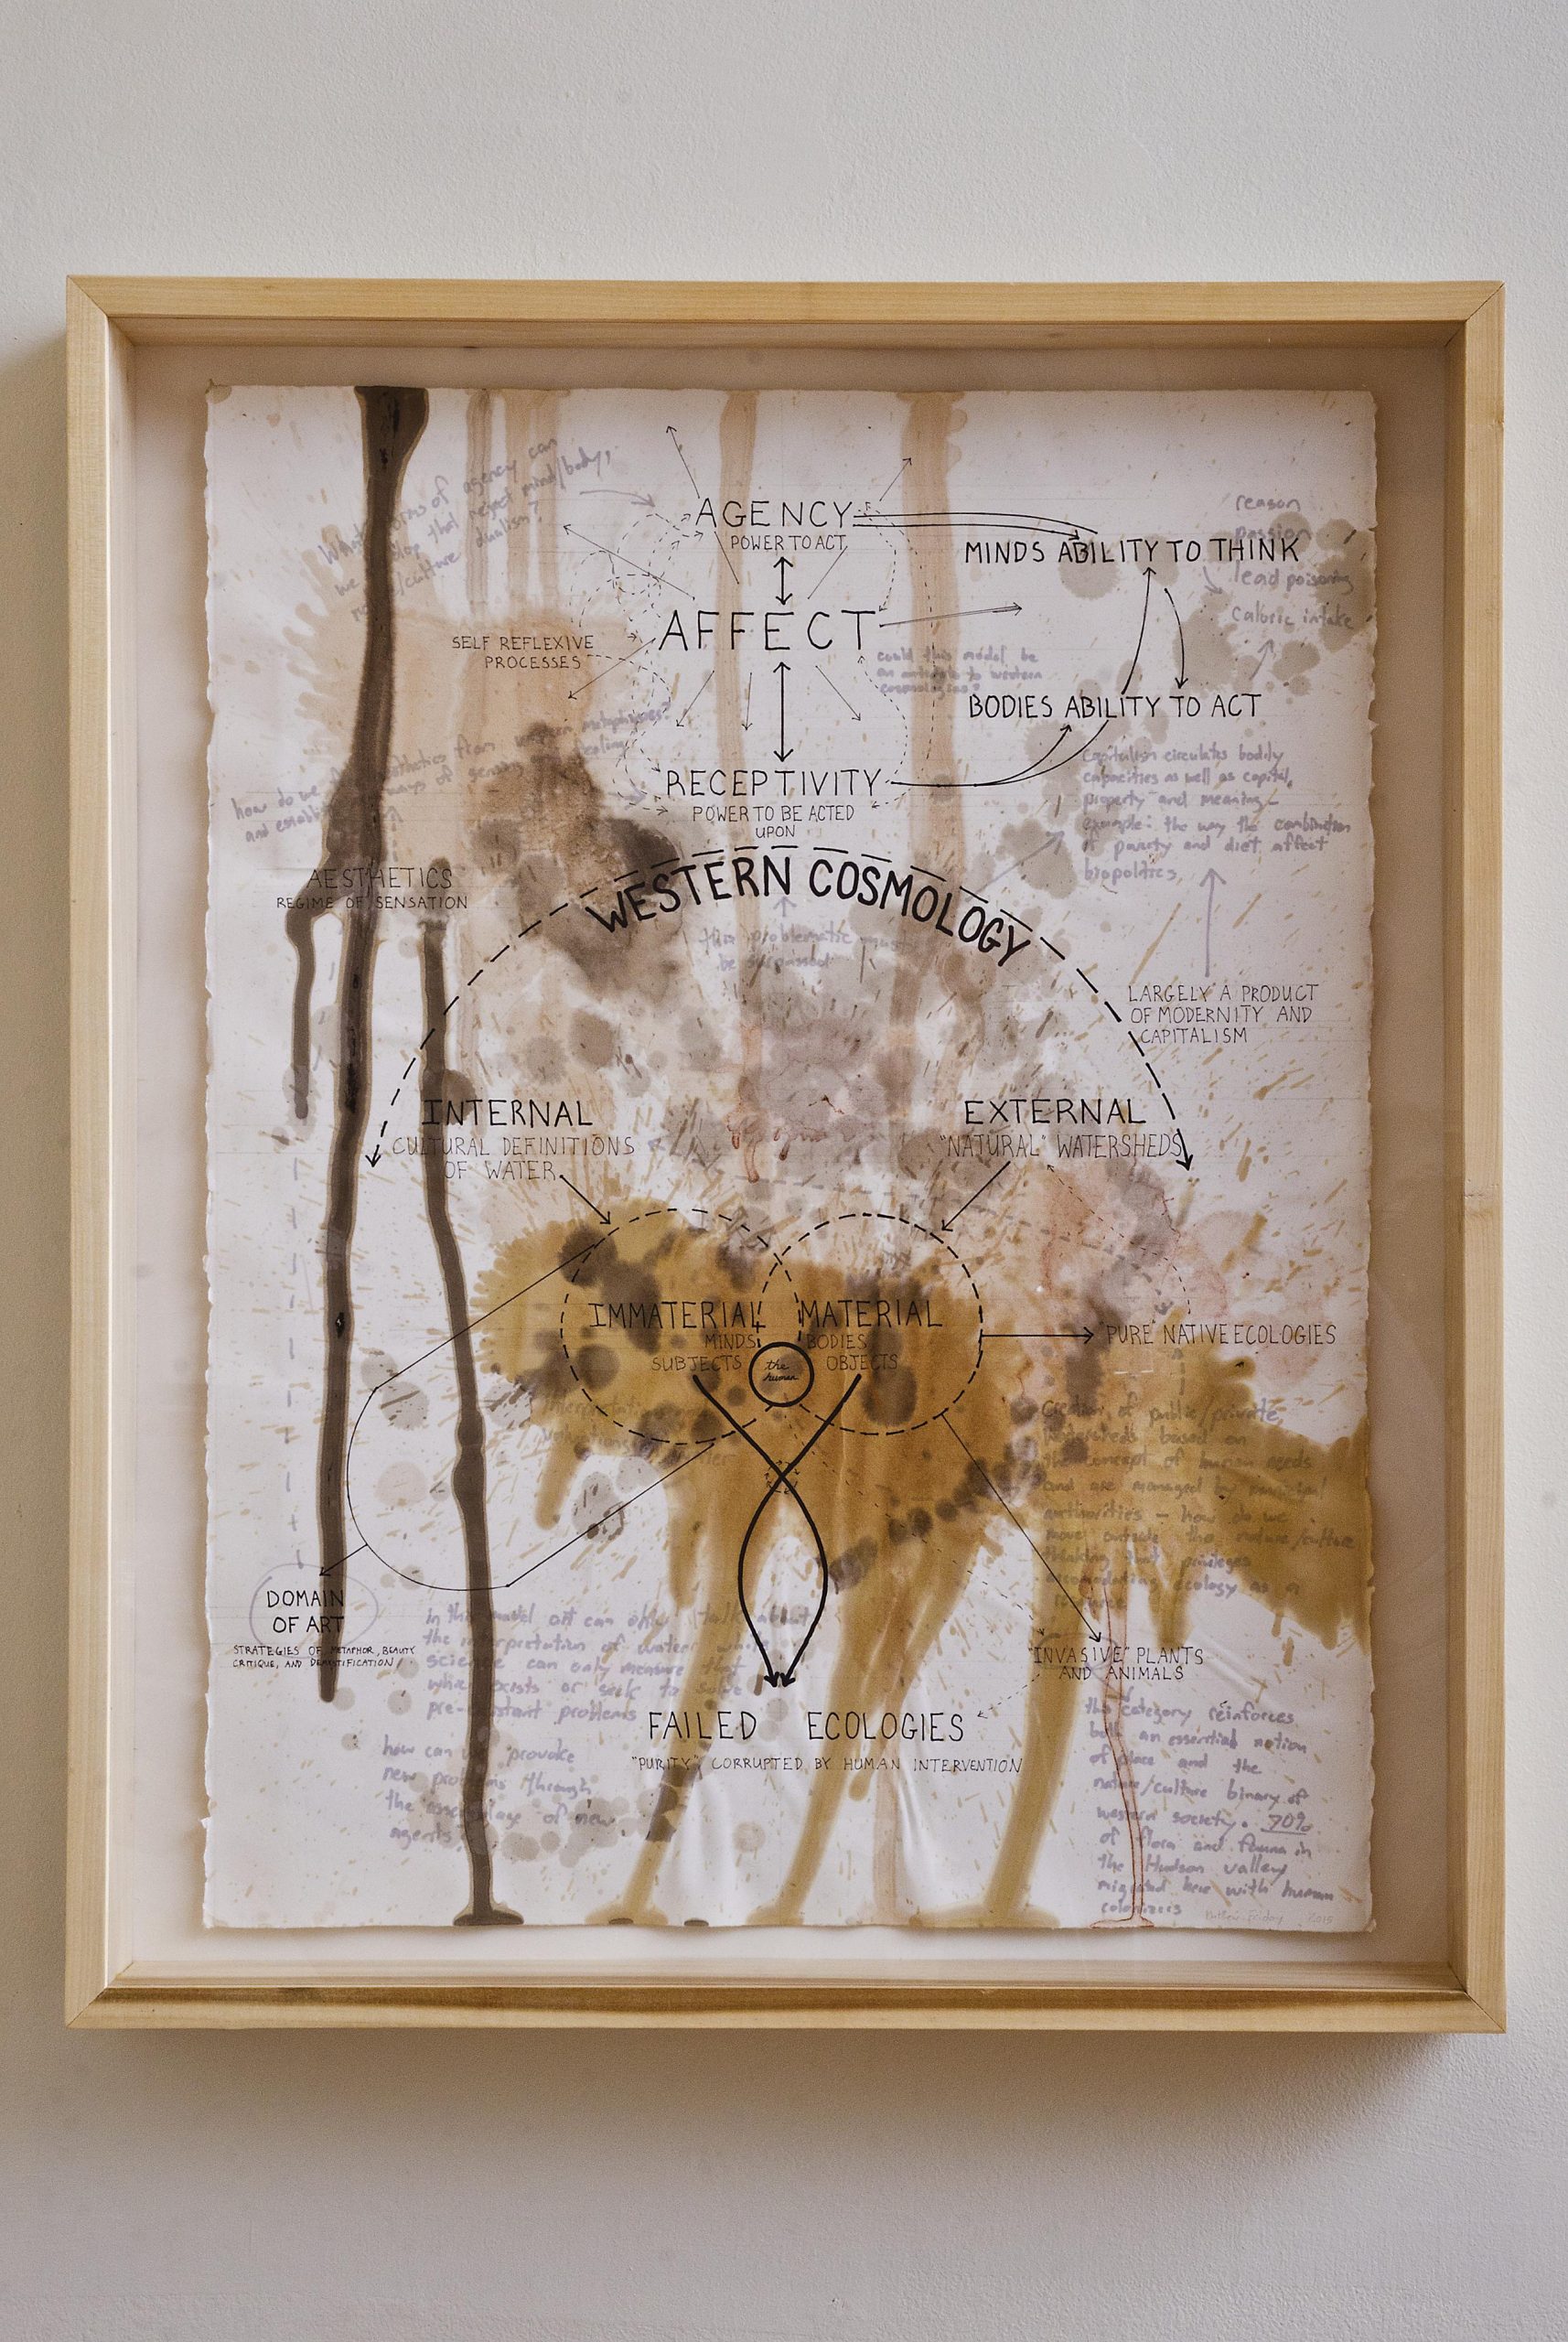 What forms of agency can
we develop that reject mind/body,
nature/culture dualism?
AGENCY
POWER TO ACT
AFFECT
SELF REFLEXIVE
PROCESSES
RECEPTIVITY
POWER TO BE ACTED
UPON
reason
passion
MINDS ABILITY TO THINK
lead poisoning
caloric intake
could this model be
an antidote to western
cosmologies?
BODIES ABILITY TO ACT
Capitalism circulates bodily
capacities as well as capital,
property and meaning -
example: the way the combination
of poverty and diet affect
biopolitics.
LARGELY A PRODUCT
OF MODERNITY AND
CAPITALISM
how do we aesthetics from western metaphysics?
and establish ways of sensing feeling
AESTHETICS
REGIME OF SENSATION
WESTERN COSMOLOGY
this problematic must
be surpassed
INTERNAL
CULTURAL DEFINITIONS
OF WATER
EXTERNAL
"NATURAL" WATERSHEDS
IMMATERIAL
MINDS
SUBJECTS
MATERIAL
BODIES
OBJECTS
the
human
PURE NATIVE ECOLOGIES
Creation of public/private
watersheds based on
the concept of human needs
and are managed by municipal
authorities - how do we
move outside the nature/culture
thinking that privileges
ecology as a
DOMAIN
OF ART
STRATEGIES OF METAPHOR, BEAUTY
CRITIQUE, AND DEMYSTIFICATION
in this model art can only talk about
the interpretation of water while
science can only measure that
which exists or seek to solve
pre-existant problems
how can we provoke
new problems through
the of new
agents
FAILED ECOLOGIES
"PURITY" CORRUPTED BY HUMAN INTERVENTION
"INVASIVE" PLANTS
AND ANIMALS
this category reinforces
both an essential notion
of place and the
nature/culture binary of
western society. 70%
of flora and fauna in
the Hudson valley
migrated here with human
colonizers
2015